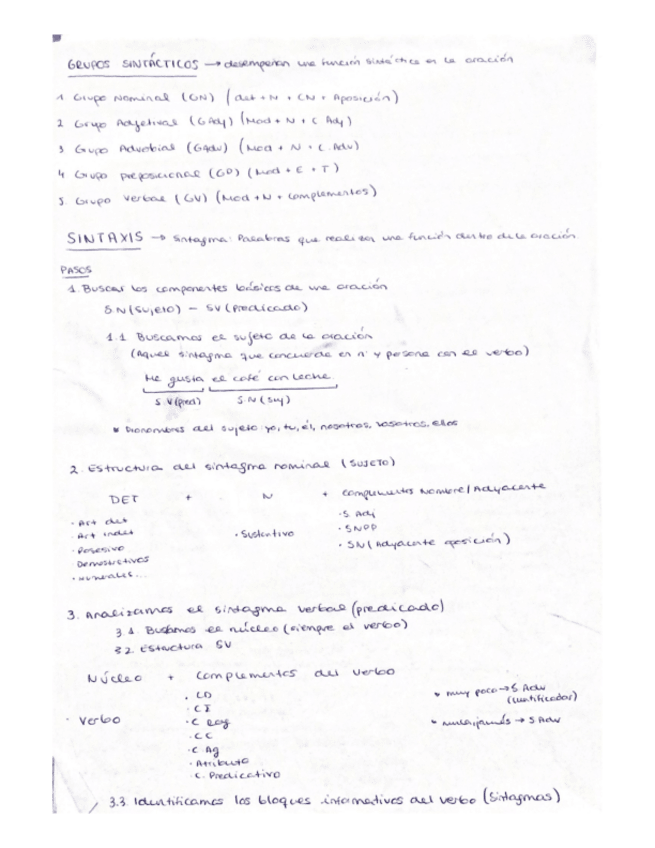 GRUPOS SINTÁCTICOS → desempeñan una función sintáctica en la oración
1 Grupo Nominal (GN) (det + N + CN + Aposición)
2 Grupo Adjetival (GAdj) (Mod + N + C Adj)
3 Grupo Adverbial (GAdv) (Mod + N + C. Adv)
4 Grupo preposicional (GP) (Mod + E + T)
5. Grupo Verbal (GV) (Mod + N + complementos)
SINTAXIS → Sintagma: Palabras que realizan una función dentro de la oración
PASOS
1. Buscar los componentes básicos de una oración
S.N (Sujeto) - SV (Predicado)
1.1 Buscamos el sujeto de la oración
(Aquel sintagma que concuerde en nº y persona con el verbo)
Me gusta el café con leche
S.V (pred) S.N (Suj)
* Pronombres del sujeto yo, tu, él, nosotros, vosotros, ellos
2. Estructura del sintagma nominal (SUJETO)
DET + N + Complementos Nombre / Adyacente
· Art det
· Art indet
· Posesivo
Demostrativos
· numerales...
· Sustantivo
· S Adj
· SNPP
· SN (Adyacente aposición)
3. Analizamos el sintagma verbal (predicado)
3.1. Buscamos el núcleo (siempre el verbo)
3.2. Estructura SV
Núcleo + Complementos del verbo
· Verbo
· CD
· CI
· C Reg
· CC
· C Ag
· Atributo
· C. Predicativo
* muy poco → S Adv
(cuantificador)
* nunca, jamás → S Adv
3.3. Identificamos los bloques informativos del verbo (Sintagmas)